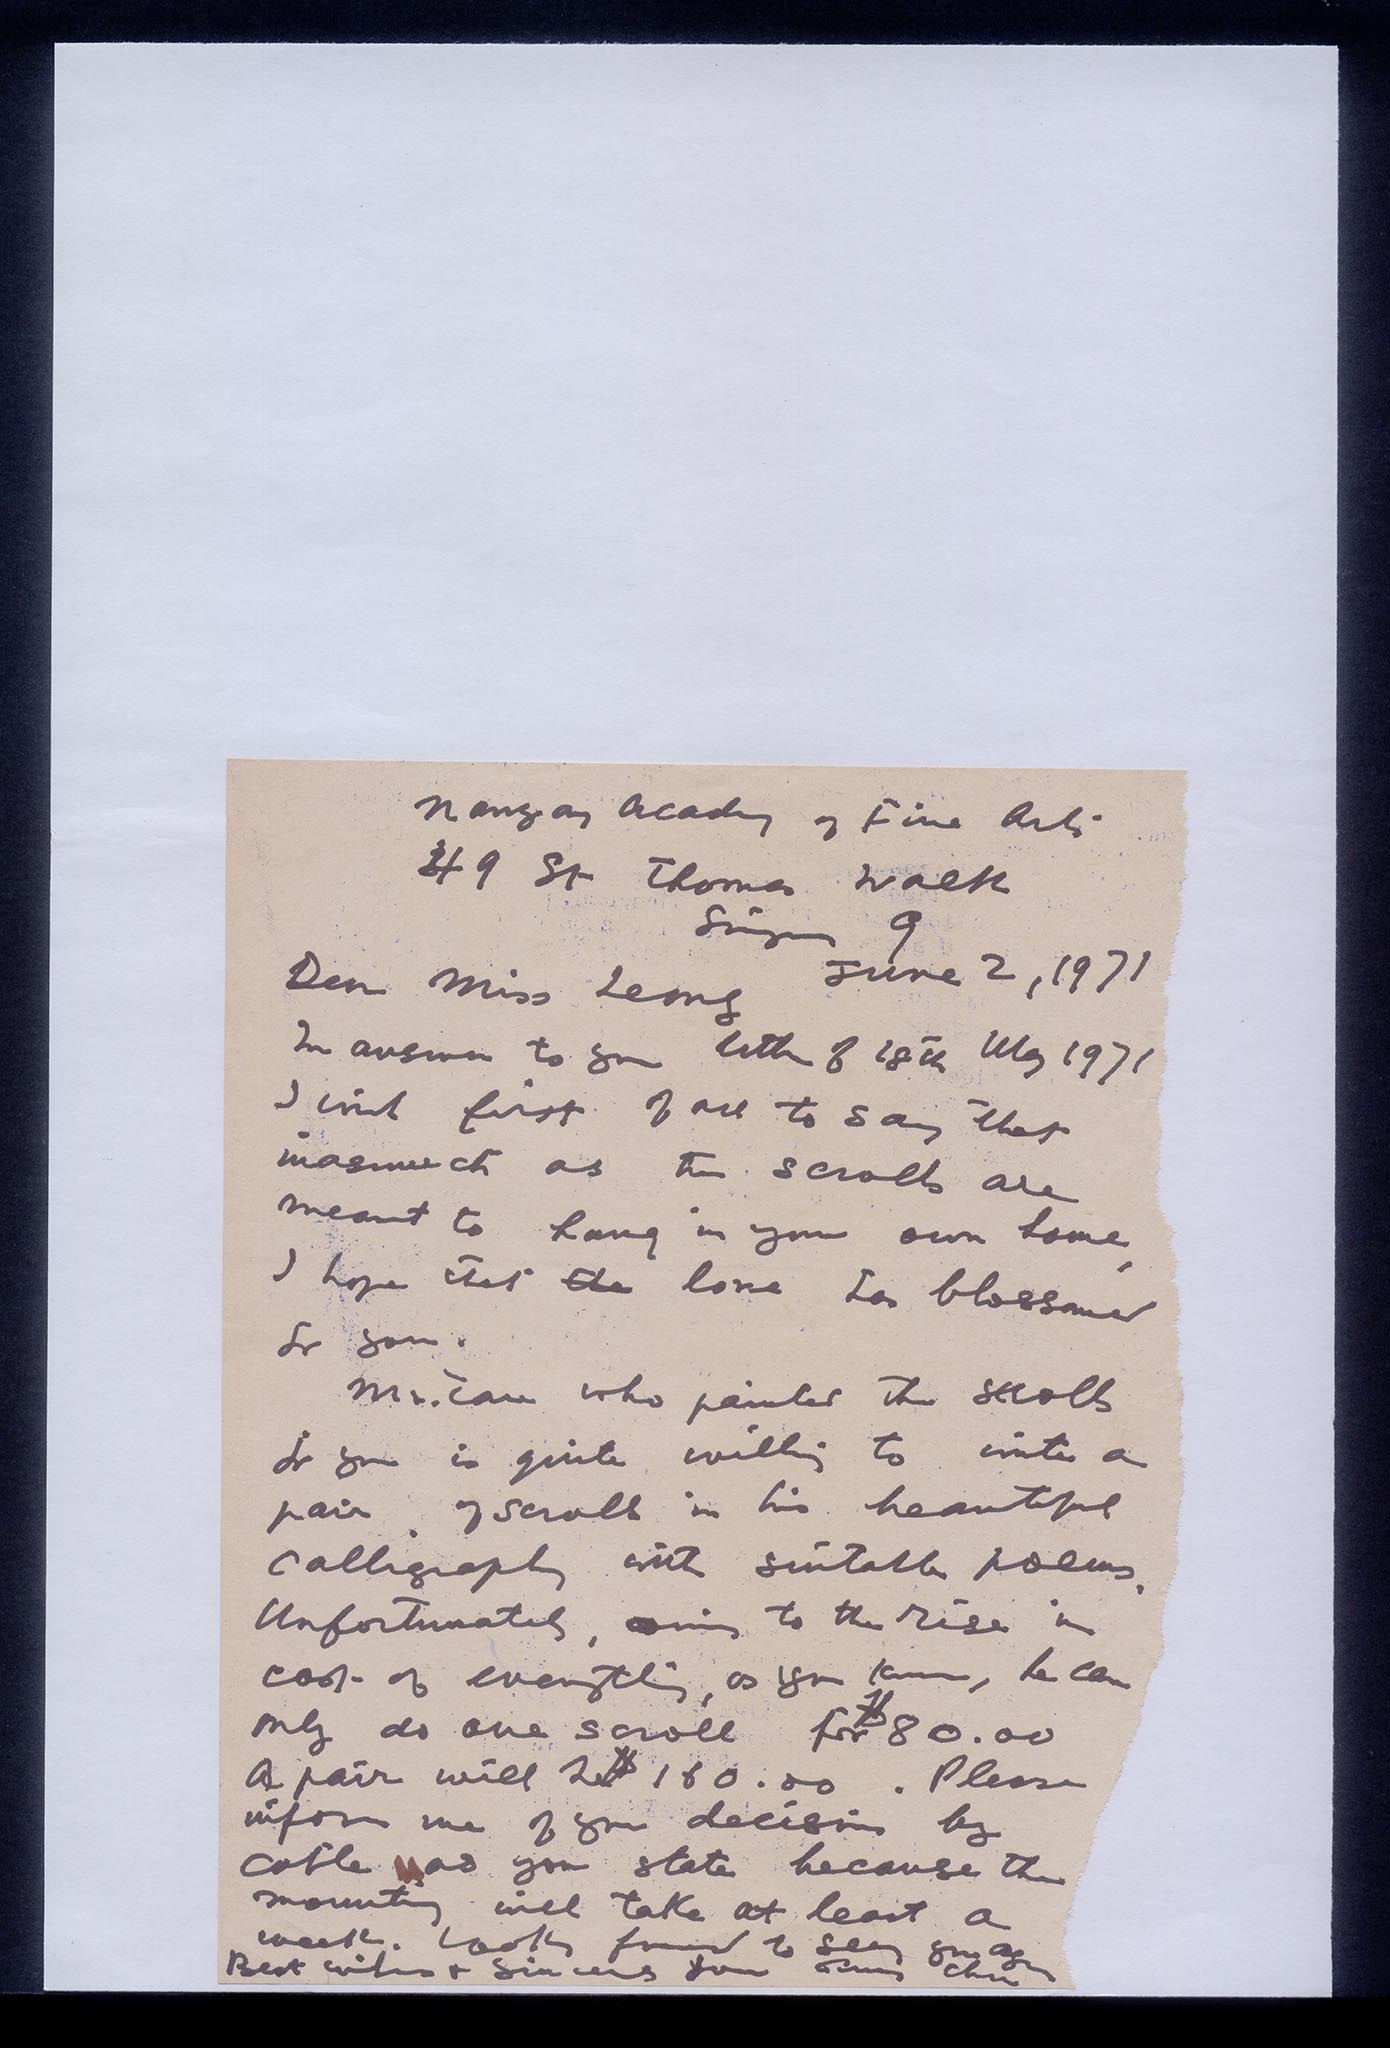 Nanyang Academy of Fine Arts
49 St Thomas Walk
Singapore 9
June 2, 1971
Dear Miss Leong
In answer to your letter of 18th May 1971
I wish first of all to say that
inasmuch as the scrolls are
meant to hang in your own home,
I hope that the love has blossomed
for you.
Mr. Tan who painted the scrolls
for you is quite willing to write a
pair of scrolls in his beautiful
calligraphy with suitable poems.
Unfortunately, owing to the rise in
cost of everything, as you know, he can
only do one scroll for $80.00
A pair will be $160.00. Please
inform me of your decision by
cable as you state because the
mounting will take at least a
week. Looking forward to seeing you again
Best wishes & Sincerely Your Chen